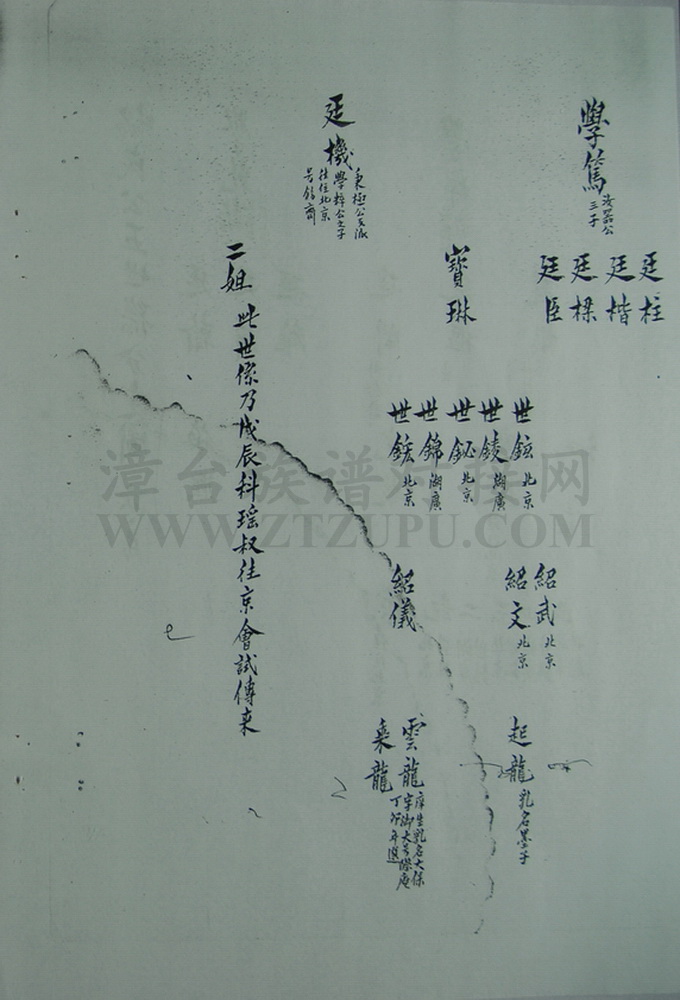 學篤 三子
廷柱
廷楷
廷樑
廷臣
寶琳
世鋐 北京
世錂 湖廣
世鉍 北京
世錦 湖廣
世鉄 北京
紹武 北京
紹文 北京
紹儀
起龍 乳名墨子
雲龍 庠生乳名大保
丁卯年進
乘龍
廷機 秉極公支派
學梓公之子
往北京
二姐
此世系乃戊辰科瑶叔往京會試傳来
漳台族谱对接网
WWW.ZTZUPU.COM